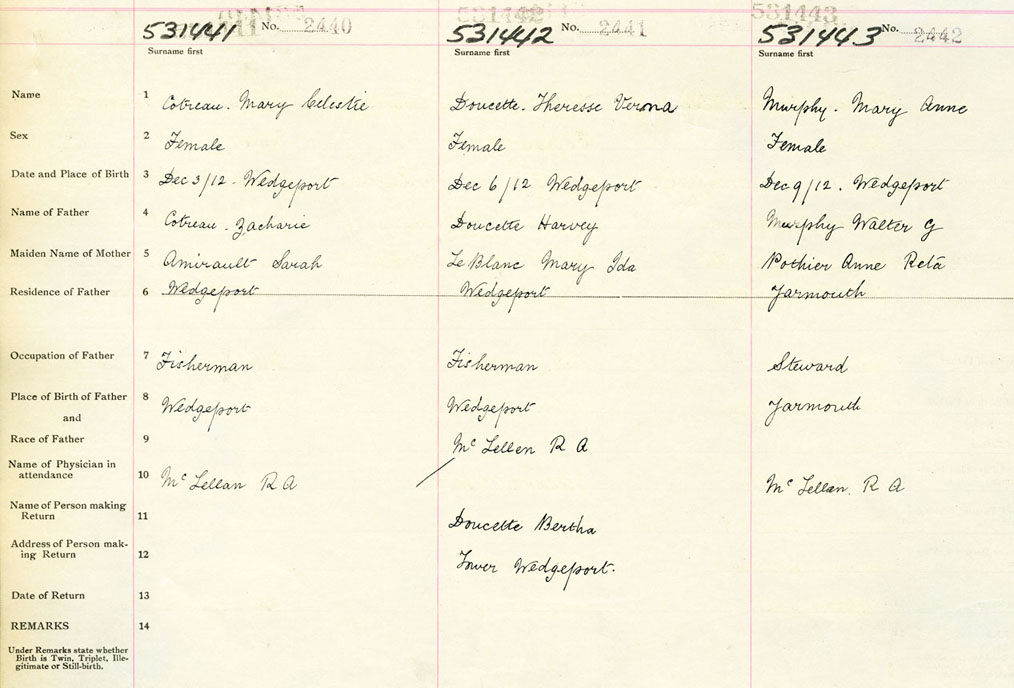 531441 No. 2440 531442 531442 No. 2441 531443 531443 No. 2442
Surname first Surname first Surname first
Name 1 Cotreau. Mary Celestie Doucette. Theresse Verona Murphy. Mary Anne
Sex 2 Female Female Female
Date and Place of Birth 3 Dec 3/12. Wedgeport Dec 6/12 Wedgeport Dec 9/12. Wedgeport
Name of Father 4 Cotreau. Zacharie Doucette Harvey Murphy Walter G
Maiden Name of Mother 5 Amirault Sarah Le Blanc Mary Ida Pothier Anne Reta
Residence of Father 6 Wedgeport Wedgeport Yarmouth
Occupation of Father 7 Fisherman Fisherman Steward
Place of Birth of Father 8 Wedgeport Wedgeport Yarmouth
and
Race of Father 9 Mc Lellen R A
Name of Physician in
attendance 10 Mc Lellan R A Mc Lellan. R A
Name of Person making
Return 11 Doucette Bertha
Address of Person mak-
ing Return 12 Lower Wedgeport.
Date of Return 13
REMARKS 14
Under Remarks state whether
Birth is Twin, Triplet, Ille-
gitimate or Still-birth.